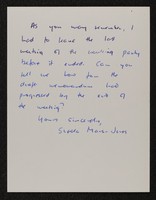 As you may remember, I
had to leave the last
meeting of the working party
before it ended. Can you
tell me how far the
draft memorandum had
progressed by the end of
the meeting?
Yours sincerely,